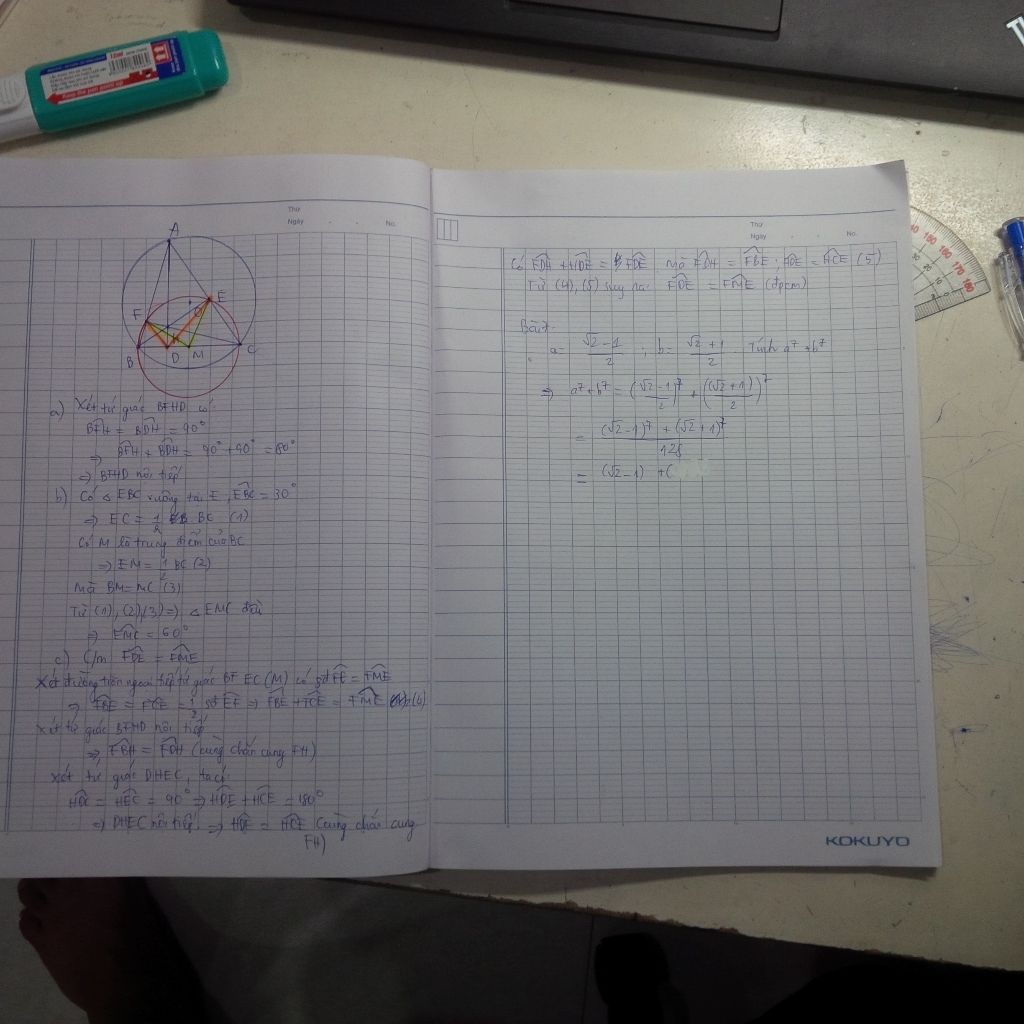 Keep the top point up
Thứ
Ngày . . No.
A
F
E
O
H
B
D
M
C
a) Xét tứ giác BFHD có:
BFH = BDH = 90°
⇒ BFH + BDH = 90° + 90° = 180°
⇒ BFHD nội tiếp
b) Có △ EBC vuông tại E, EBC = 30°
⇒ EC = 1/2 BC (1)
Có M là trung điểm của BC
⇒ EM = 1/2 BC (2)
Mà BM = MC (3)
Từ (1), (2), (3) ⇒ △ EMC đều
⇒ EMC = 60°
c) C/m FDE = FME
Xét đường tròn ngoại tiếp tứ giác BFEC (M) có sđ FE = FME
⇒ FBE = FCE = 1/2 sđ EF ⇒ FBE + FCE = FME (4)
Xét tứ giác BFHD nội tiếp
⇒ FBH = FDH (cùng chắn cung FH)
Xét tứ giác DHEC, ta có:
HDC = HEC = 90° ⇒ HDE + HCE = 180°
⇒ DHEC nội tiếp ⇒ HDE = HCE (cùng chắn cung
FH)
Thứ
Ngày . . No.
Có FDH + HDE = FDE mà FDH = FBE; HDE = HCE (5)
Từ (4), (5) suy ra: FDE = FME (đpcm)
Bài 7.
a = (√2 - 1)/2 ; b = (√2 + 1)/2 . Tính a⁷ + b⁷
⇒ a⁷ + b⁷ = ((√2 - 1)/2)⁷ + ((√2 + 1)/2)⁷
= ((√2 - 1)⁷ + (√2 + 1)⁷)/128
= (√2 - 1) + (
KOKUYO
160
180